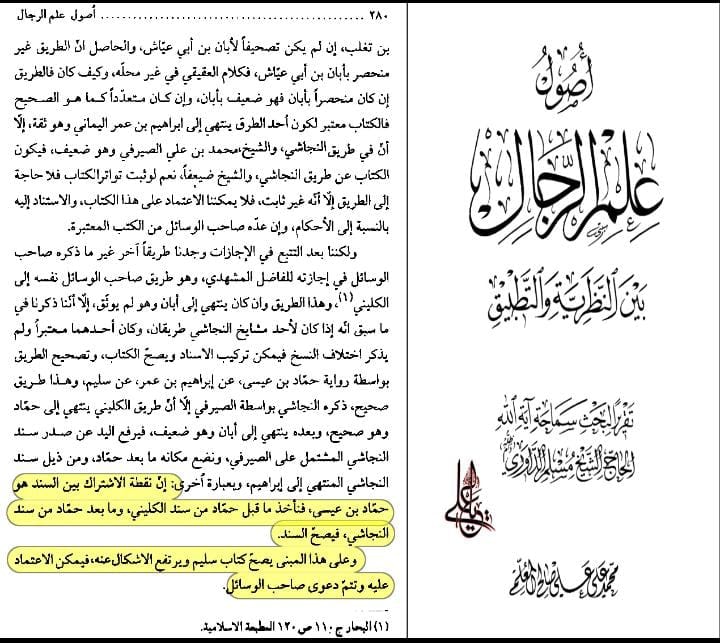 أُصولُ
عِلمِ الرِّجالِ
بَيْنَ النَّظَرِيَّةِ وَالتَّطْبِيْقِ
تقريرًا لبحث سماحة آية الله
الحاج الشيخ مسلم الداوري
يا علي
محمد علي علي صالح المعلم
٢٨٠ .................................................. أصول علم الرجال
بن تغلب، إن لم يكن تصحيفاً لأبان بن أبي عيّاش، والحاصل انّ الطريق غير
منحصر بأبان بن أبي عيّاش، فكلام العقيقي في غير محلّه، وكيف كان فالطريق
إن كان منحصراً بأبان فهو ضعيف بأبان، وإن كان متعدّداً كما هو الصحيح
فالكتاب معتبر لكون أحد الطرق ينتهي إلى ابراهيم بن عمر اليماني وهو ثقة، إلّا
أنّ في طريق النجاشي، والشيخ،محمد بن علي الصيرفي وهو ضعيف، فيكون
الكتاب عن طريق النجاشي، والشيخ ضعيفاً، نعم لوثبت تواترالكتاب فلا حاجة
إلى الطريق إلّا أنّه غير ثابت، فلا يمكننا الاعتماد على هذا الكتاب، والاستناد إليه
بالنسبة إلى الأحكام، وإن عدّه صاحب الوسائل من الكتب المعتبرة.
ولكننا بعد التتبع في الإجازات وجدنا طريقاً آخر غير ما ذكره صاحب
الوسائل في إجازته للفاضل المشهدي، وهو طريق صاحب الوسائل نفسه إلى
الكليني(١)، وهذا الطريق وان كان ينتهي إلى أبان وهو لم يوثّق، إلّا أنّنا ذكرنا في
ما سبق انّه إذا كان لأحد مشايخ النجاشي طريقان، وكان أحدهما معتبراً ولم
يذكر اختلاف النسخ فيمكن تركيب الاسناد ويصحّ الكتاب، وتصحيح الطريق
بواسطة رواية حمّاد بن عيسى، عن إبراهيم بن عمر، عن سليم، وهذا طريق
صحيح، ذكره النجاشي بواسطة الصيرفي إلّا أنّ طريق الكليني ينتهي إلى حمّاد
وهو صحيح، وبعده ينتهي إلى أبان وهو ضعيف، فيرفع اليد عن صدر سند
النجاشي المشتمل على الصيرفي، ونضع مكانه ما بعد حمّاد، ومن ذيل سند
النجاشي المنتهي إلى إبراهيم، وبعبارة أخرى: إنّ نقطة الاشتراك بين السند هو
حمّاد بن عيسى، فنأخذ ما قبل حمّاد من سند الكليني، وما بعد حمّاد من سند
النجاشي، فيصحّ السند.
وعلى هذا المبنى يصحّ كتاب سليم ويرتفع الاشكال عنه، فيمكن الاعتماد
عليه وتتمّ دعوى صاحب الوسائل.
(١) البحار ج ١١٠ ص ١٢٠ المطبعة الاسلامية.